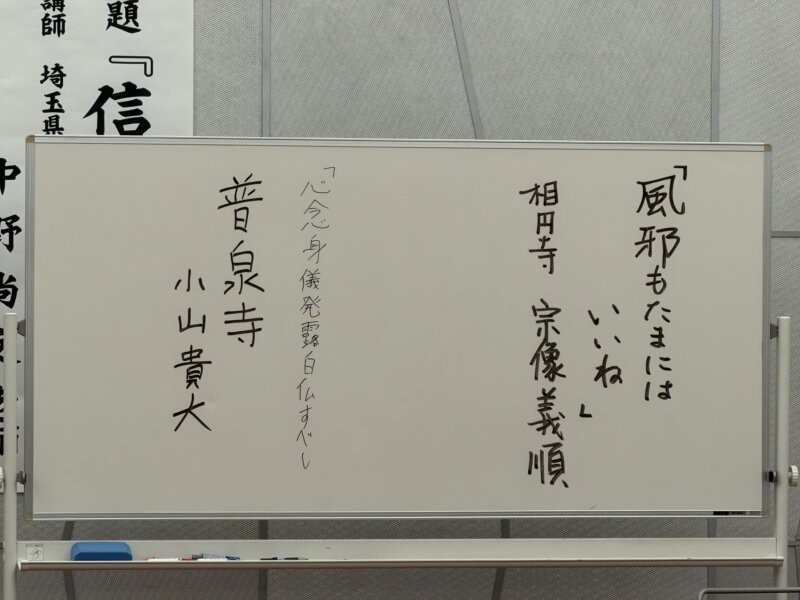 「風邪もたまには
いいね」
相円寺 宗像義順
「心念身儀発露白仏すべし
普泉寺
小山貴大
題『信
講師 埼玉県
中野尚